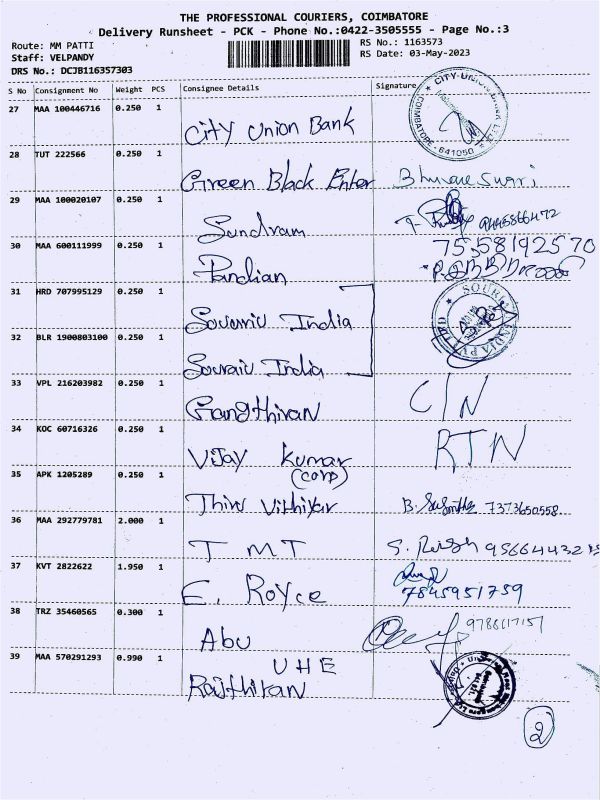 THE PROFESSIONAL COURIERS, COIMBATORE
Delivery Runsheet - PCK - Phone No.:0422-3505555 - Page No.:3
Route: MM PATTI
RS No.: 1163573
Staff: VELPANDY
RS Date: 03-May-2023
DRS No.: DCJB116357303
S No Consignment No Weight PCS Consignee Details Signature
27 MAA 100446716 0.250 1
City Union Bank
CITY UNION BANK
COIMBATORE - 641050
28 TUT 222566 0.250 1
Green Black Enter
29 MAA 100020107 0.250 1
Sundram
30 MAA 600111999 0.250 1
7558192570
Pandian
31 HRD 707995129 0.250 1
India
32 BLR 1900803100 0.250 1
India
33 VPL 216203982 0.250 1
C/N
34 KOC 60716326 0.250 1
RTN
Vijay Kumar
(Corp)
35 APK 1205289 0.250 1
Thiru 7373650558
36 MAA 292779781 2.000 1
TMT
37 KVT 2822622 1.950 1
E. Royce 7845951759
38 TRZ 35460565 0.300 1
Abu
39 MAA 570291293 0.990 1
UHE
2